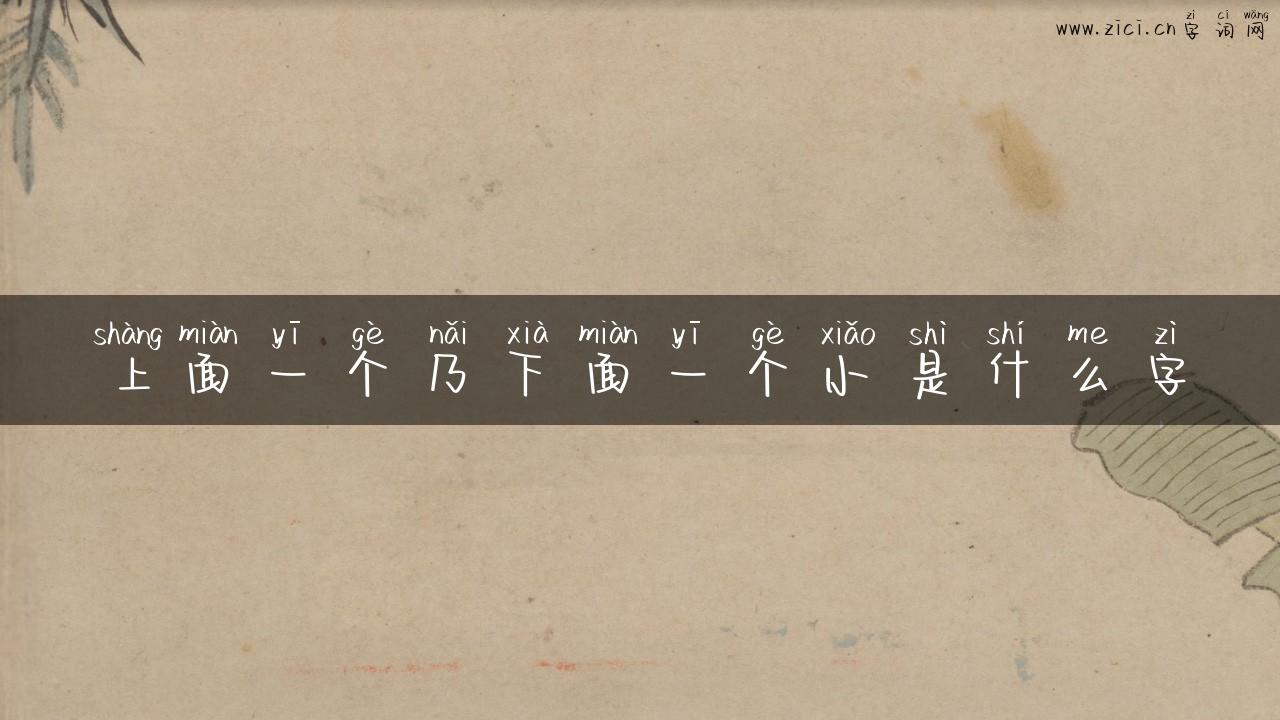 zì cí wǎng
www.zici.cn 字词网
shàng miàn yī gè nǎi xià miàn yī gè xiǎo shì shí me zì
上面一个乃下面一个小是什么字